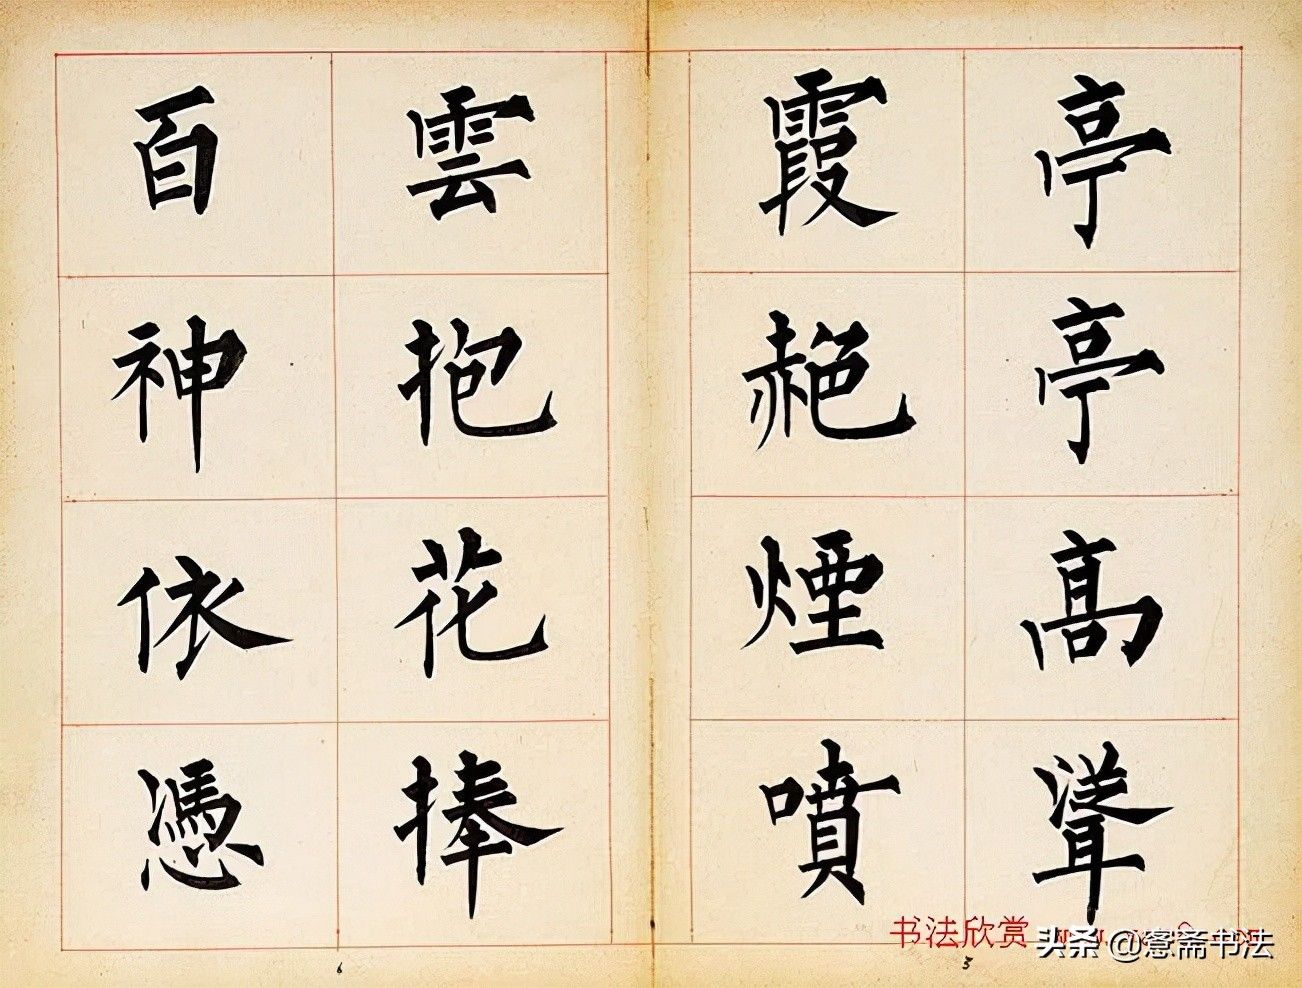 亭亭高聳
霞赩煙噴
雲抱花捧
百神依憑
6
5
书法欣赏
头条 @愙斋书法